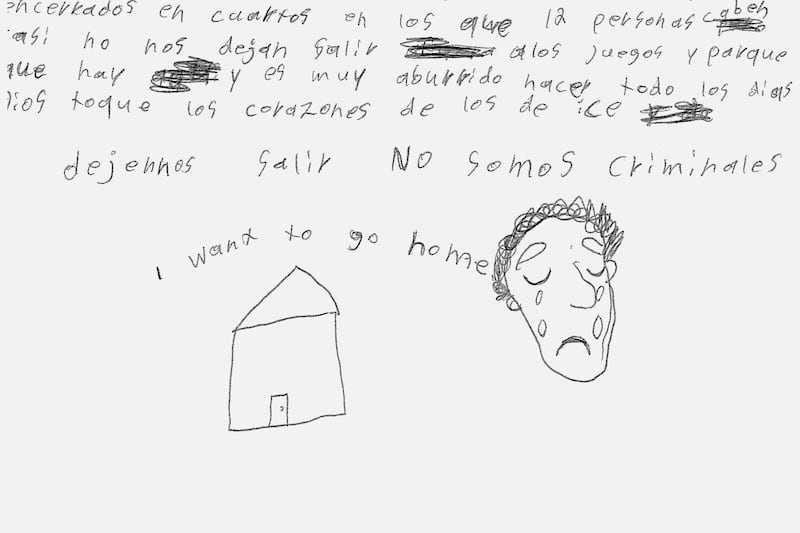 encerrados en cuartos en los que 12 personas caben
casi no nos dejan salir a los juegos y parque
que hay y es muy aburrido hacer todo los dias
Dios toque los corazones de los de ice
dejennos salir No somos criminales
I want to go home